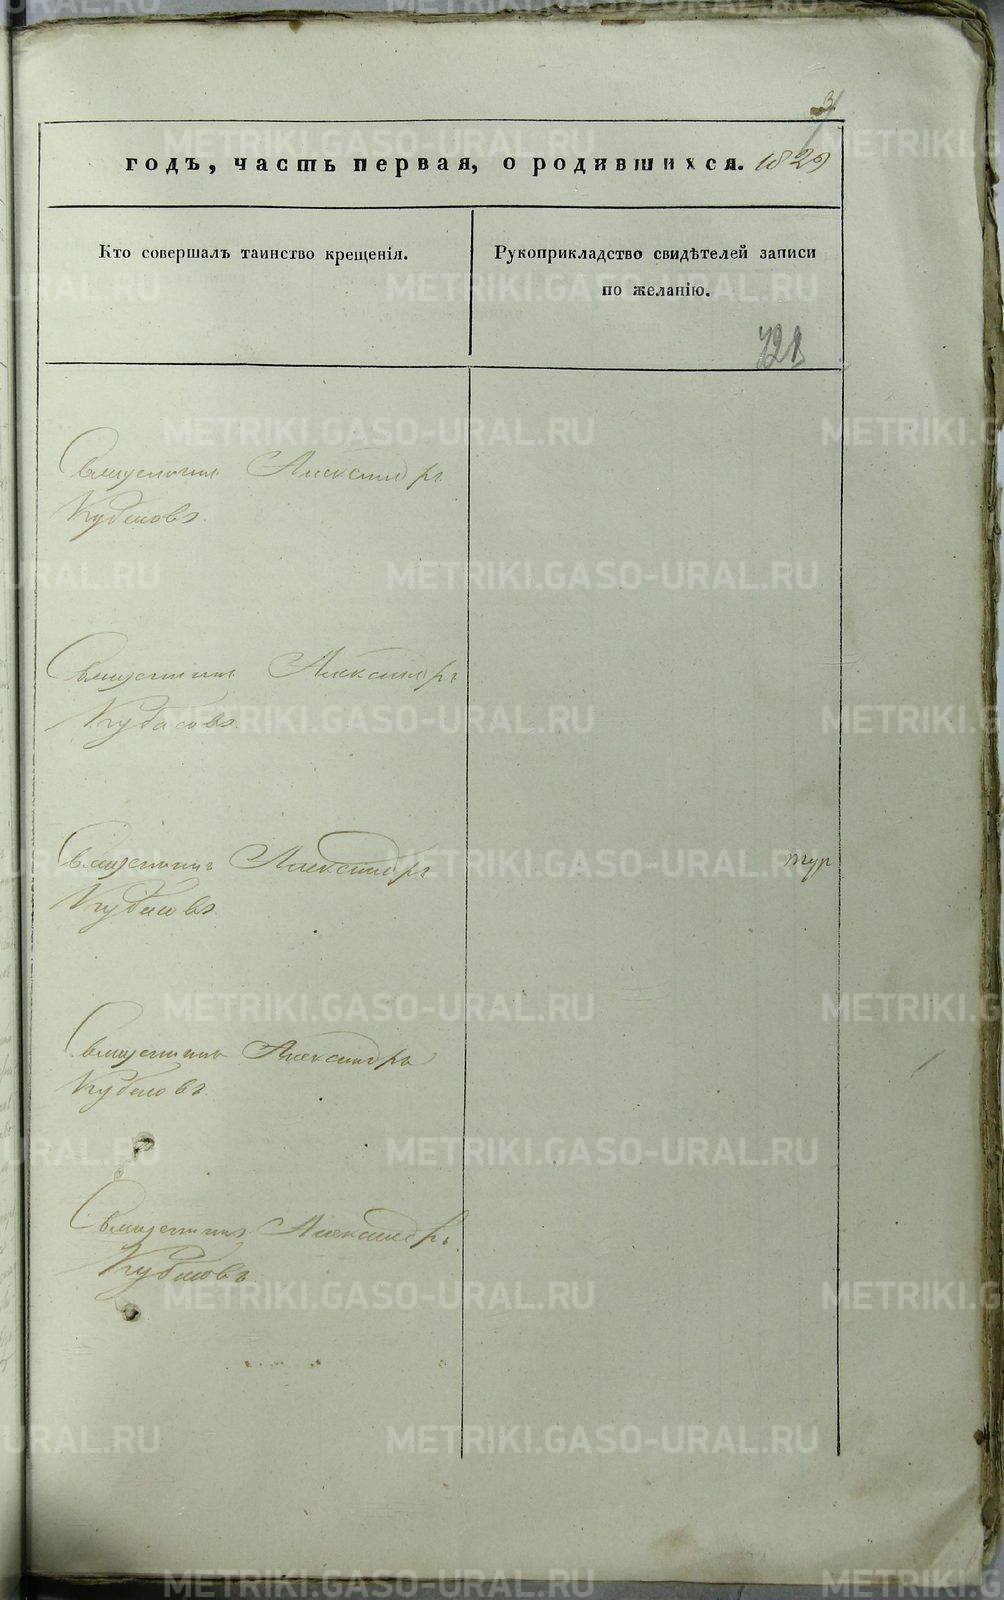 годъ, часть первая, о родившихся. 1829
Кто совершалъ таинство крещенія.
Рукоприкладство свидѣтелей записи
по желанію.
Священникъ Александръ
Кубасовъ.
Священникъ Александръ
Кубасовъ.
Священникъ Александръ
Кубасовъ
тур
Священникъ Александръ
Кубасовъ
Священникъ Александръ
Кубасовъ
METRIKI.GASO-URAL.RU